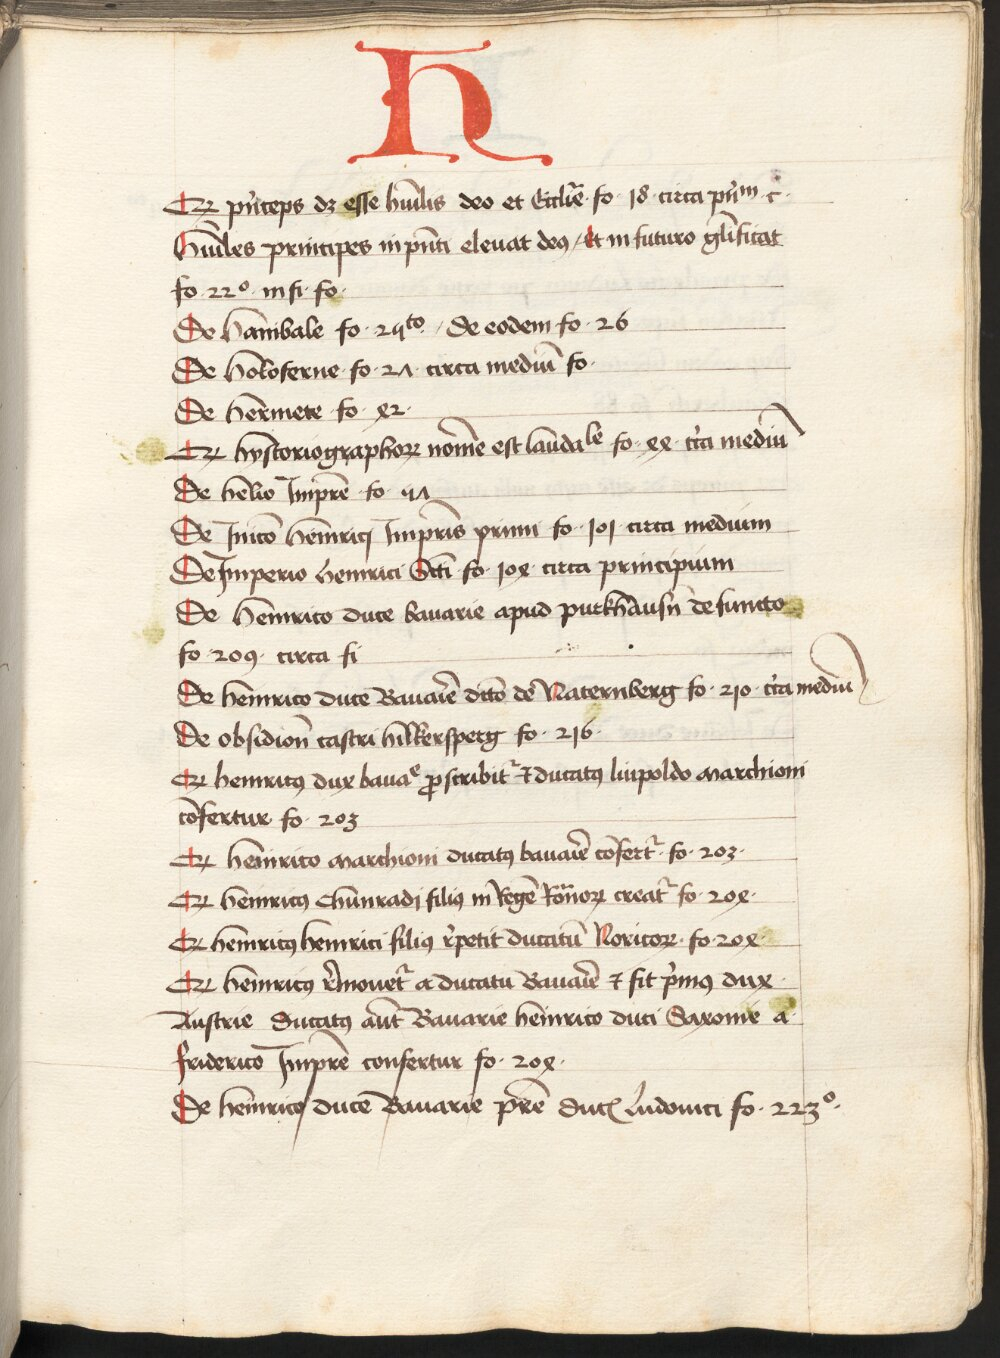 H
Qꝛ pͥnceps dꝫ esse hūilis deo et Eccl̄ie fo· 18· circa pͥnᵐ c·
Hūiles principes in pn̄ti eleuat deꝯ / Et in futuro gl̄ificat
fo· 22°· in fi· fo·
De Hanibale fo· 24ᵗᵒ· / De eodem fo· 26
De Holoferne· fo· 27· circa mediū fo·
De Hermete· fo· 42·
Qꝛ hystoriographoꝝ nomē est laudaˡᵉ fo· 44· cͥca mediū
De helio Imꝑe fo· 57
De Inicō Heinricj Imꝑis primi fo· 101 circa medium
De Imperio heinrici Scdi fo· 104· circa principium
De Heinrico duce bauarie apud purkhausn̄ defuncto
fo· 209· circa fi
De heinrico duce Bauaīe dictō de Naternberg fo· 210· cͥca mediū
De obsidion̄ castri hilkersperg fo· 216·
Qꝛ heinricꝯ dux bauaᵉ ꝓscribit᷑ ⁊ ducatꝯ liupoldo marchioni
cōfertur· fo· 203
Qꝛ heinrico marchioni ducatꝯ bauaīe cōfert᷑· fo· 203·
Qꝛ heinricꝯ Chunradj filiꝯ in Regē Rōnoꝝ creat᷑ fo· 204·
Qꝛ heinricꝯ heinrici filiꝯ r̄petit ducatū Noricoꝝ· fo· 204
Qꝛ heinricꝯ r̄mouet᷑ a ducatu Bauaīe ⁊ fit pͥmꝯ dux
Austrie Ducatꝯ aūt Bauarie heinrico duci Saxonie a
friderico Imꝑe confertur fo· 204·
De heinrico duce Bauarie pr̄e Ducꝭ Ludouici fo· 223°·